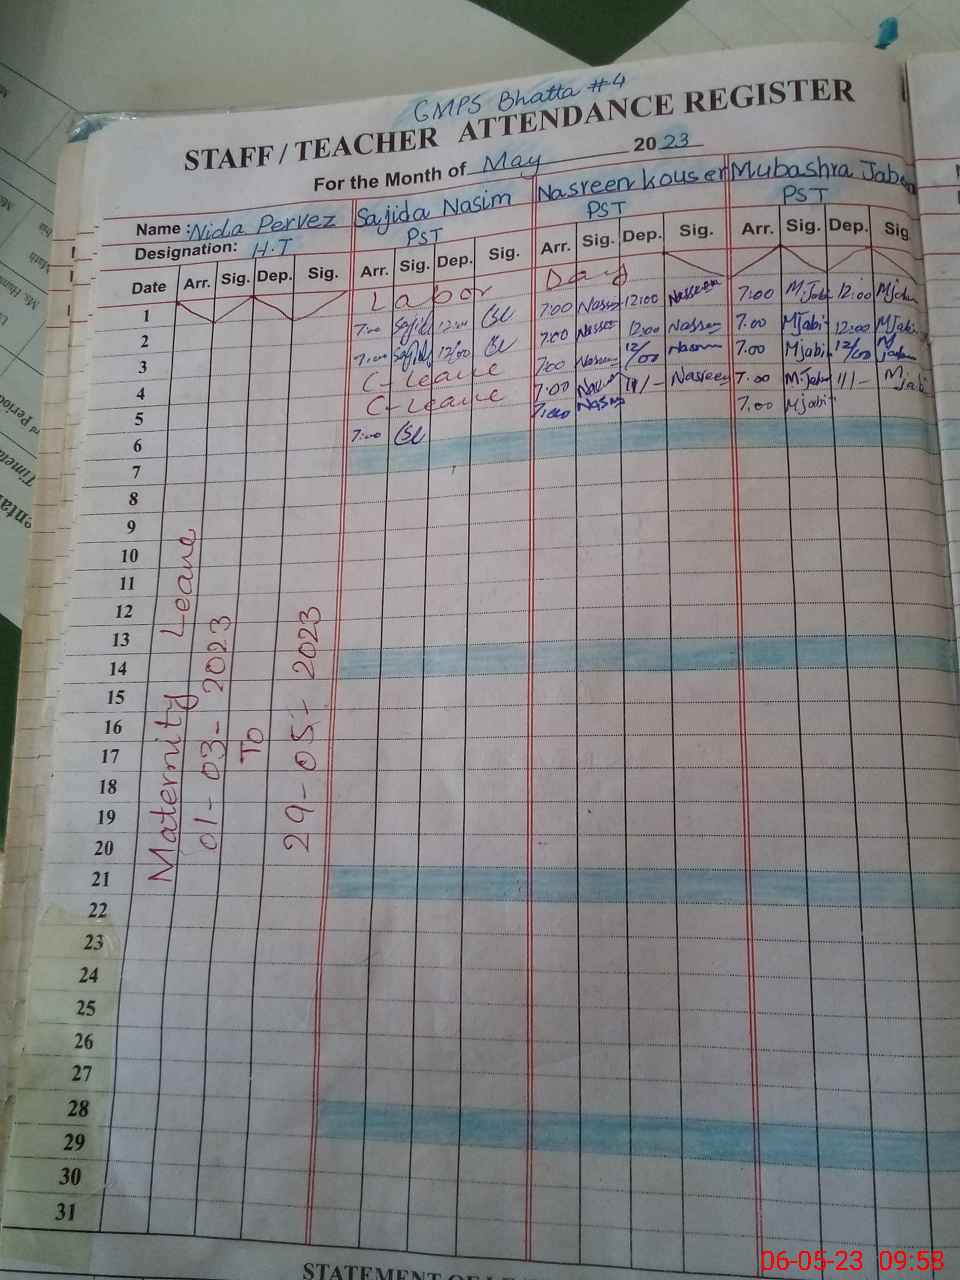 GMPS Bhatta #4
STAFF / TEACHER ATTENDANCE REGISTER
For the Month of May 2023
Name: Nida Pervez Sajida Nasim Nasreen kouser Mubashra Jabeen
Designation: H.T PST PST PST
Date Arr. Sig. Dep. Sig. Arr. Sig. Dep. Sig. Arr. Sig. Dep. Sig. Arr. Sig. Dep. Sig.
1 Labor Day
2 7:00 12:00 7:00 12:00 7:00 M.Jabi 12:00
3 7:00 12/00 7:00 12:00 7.00 MJabi 12:00 MJabi
4 C-Leave 7:00 12/00 7.00 Mjabi 12/00
5 C-Leave 7.00 11/- Nasreen 7.00 11/-
6 7:00 7:00 7:00 Mjabi
7
8
9
10
11
12
13
14
15
16
17
18
19
20
21
22
23
24
25
26
27
28
29
30
31
Maternity Leave
01-03-2023
To
29-05-2023
STATEMENT OF
06-05-23 09:58